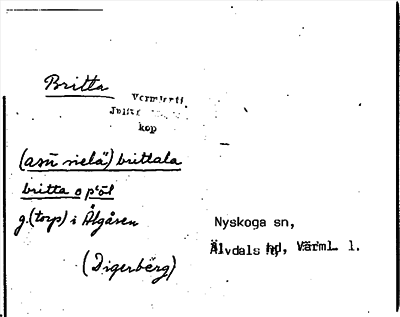 Britta
kop
(asū nielä) brittala
britta o på̄l
g. (torp) i Älgåsen
(Digerberg)
Nyskoga sn,
Älvdals hd, Värml. l.